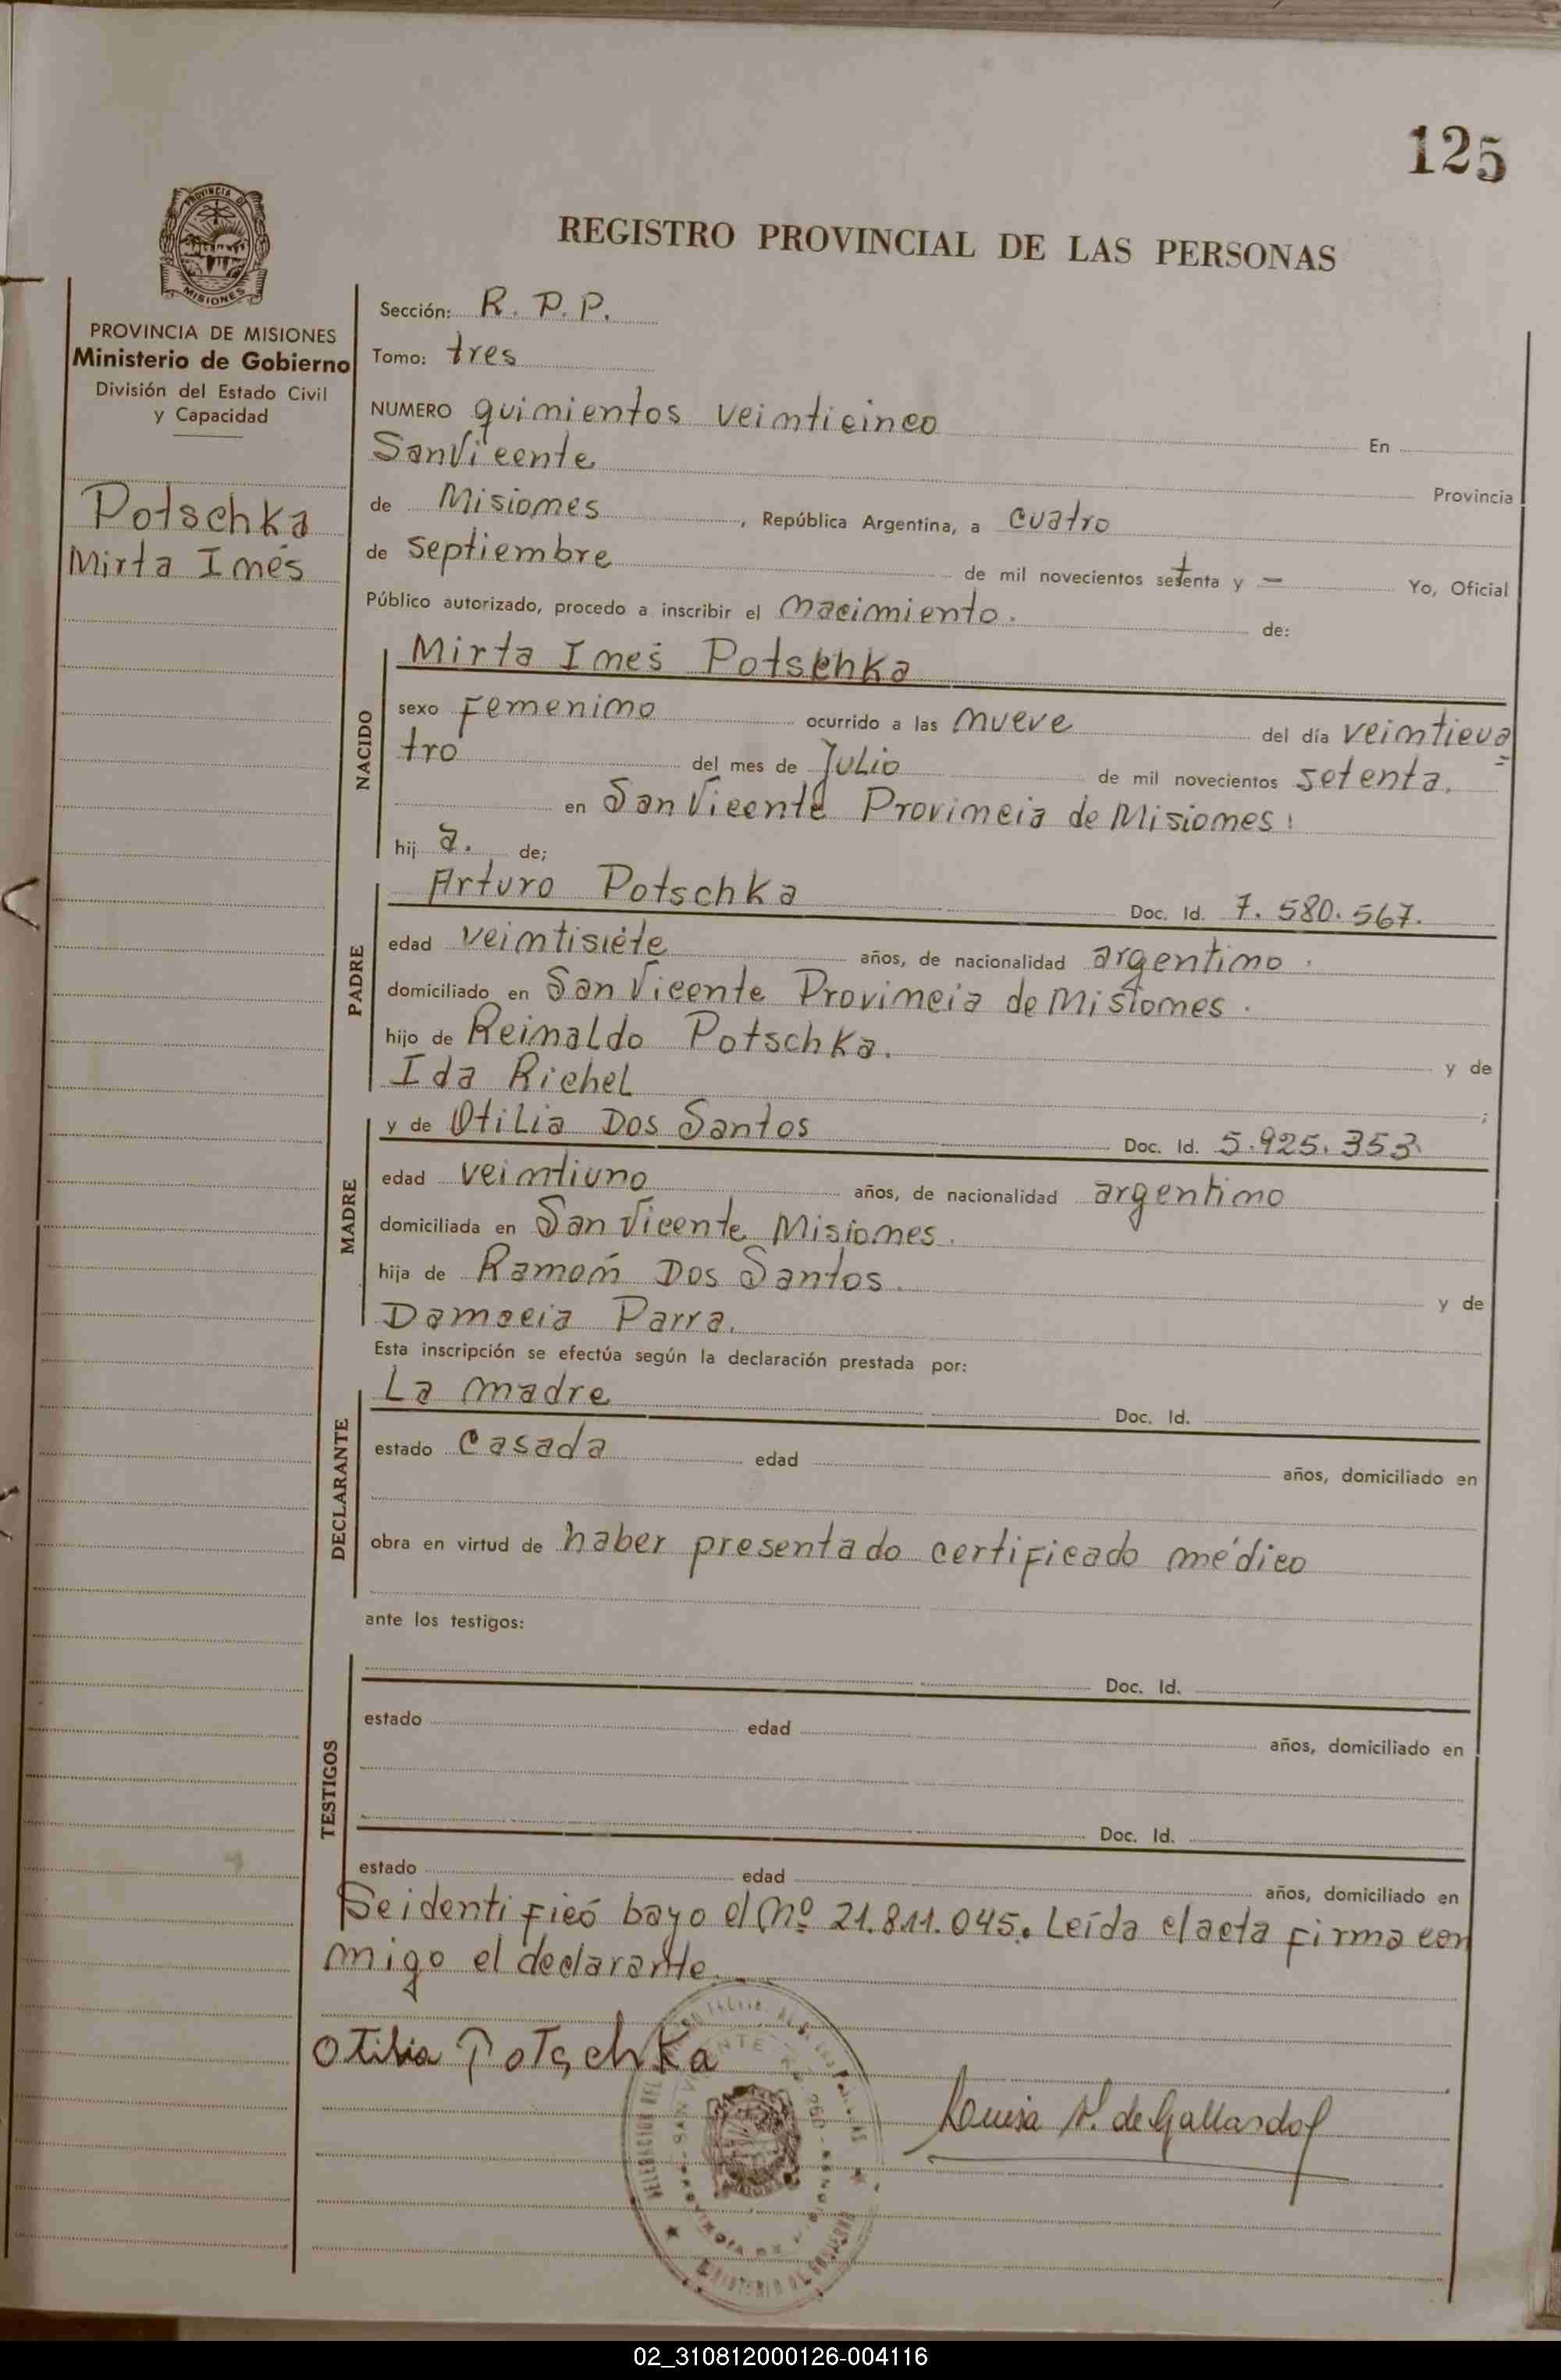 125
PROVINCIA DE
MISIONES
REGISTRO PROVINCIAL DE LAS PERSONAS
PROVINCIA DE MISIONES
Ministerio de Gobierno
División del Estado Civil
y Capacidad
Potschka
Mirta Inés
Sección: R. P. P.
Tomo: tres
NUMERO quinientos veinticinco En
San Vicente Provincia
de Misiones, República Argentina, a cuatro
de septiembre de mil novecientos setenta y — Yo, Oficial
Público autorizado, procedo a inscribir el nacimiento. de:
NACIDO
Mirta Inés Potschka
sexo Femenino ocurrido a las nueve del día veinticua
tro del mes de Julio de mil novecientos setenta.
en San Vicente Provincia de Misiones.
hij a. de;
PADRE
Arturo Potschka Doc. Id. 7.580.567.
edad veintisiéte años, de nacionalidad argentino.
domiciliado en San Vicente Provincia de Misiones.
hijo de Reinaldo Potschka. y de
Ida Richel ;
MADRE
y de Otilia Dos Santos Doc. Id. 5.925.353.
edad veintiuno años, de nacionalidad argentino
domiciliada en San Vicente Misiones.
hija de Ramón Dos Santos. y de
Damacia Parra.
Esta inscripción se efectúa según la declaración prestada por:
DECLARANTE
La madre Doc. Id.
estado casada edad años, domiciliado en
obra en virtud de haber presentado certificado médico
ante los testigos:
TESTIGOS
Doc. Id.
estado edad años, domiciliado en
Doc. Id.
estado edad años, domiciliado en
Se identificó bayo el Nº 21.811.045. Leída el acta firma con
migo el declarante.
Otilia Potschka
de Gallardo
02_310812000126-004116